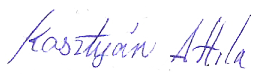 Kosztyán Attila